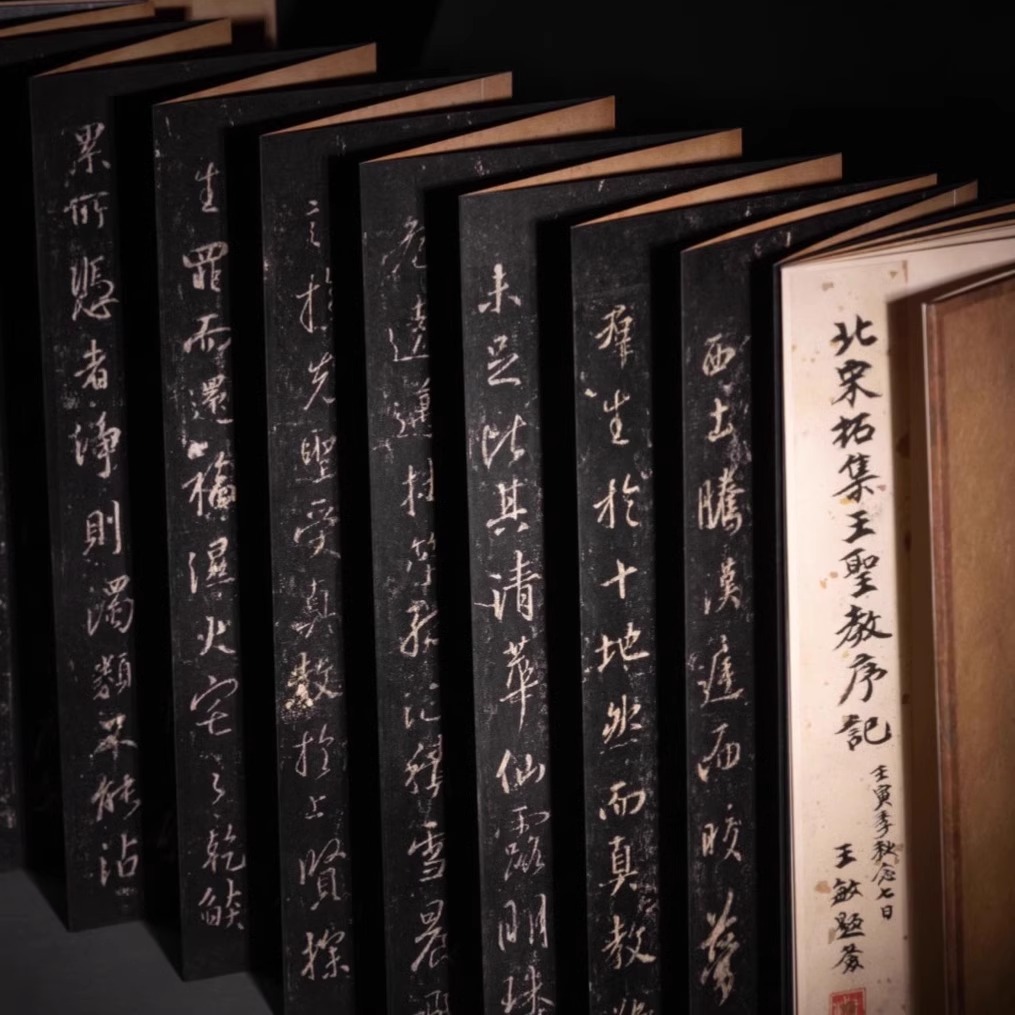 北宋拓集王聖教序記
壬寅季秋念七日
王敏題簽
西土騰漢庭而皎夢
群生於十地然而真教
未足比其清華仙露明珠
危遠邁杖策孤征積雪晨
言於先聖受真教於上賢探
生罪而還福濕火宅之乾焰
累所憑者淨則濁類不能沾